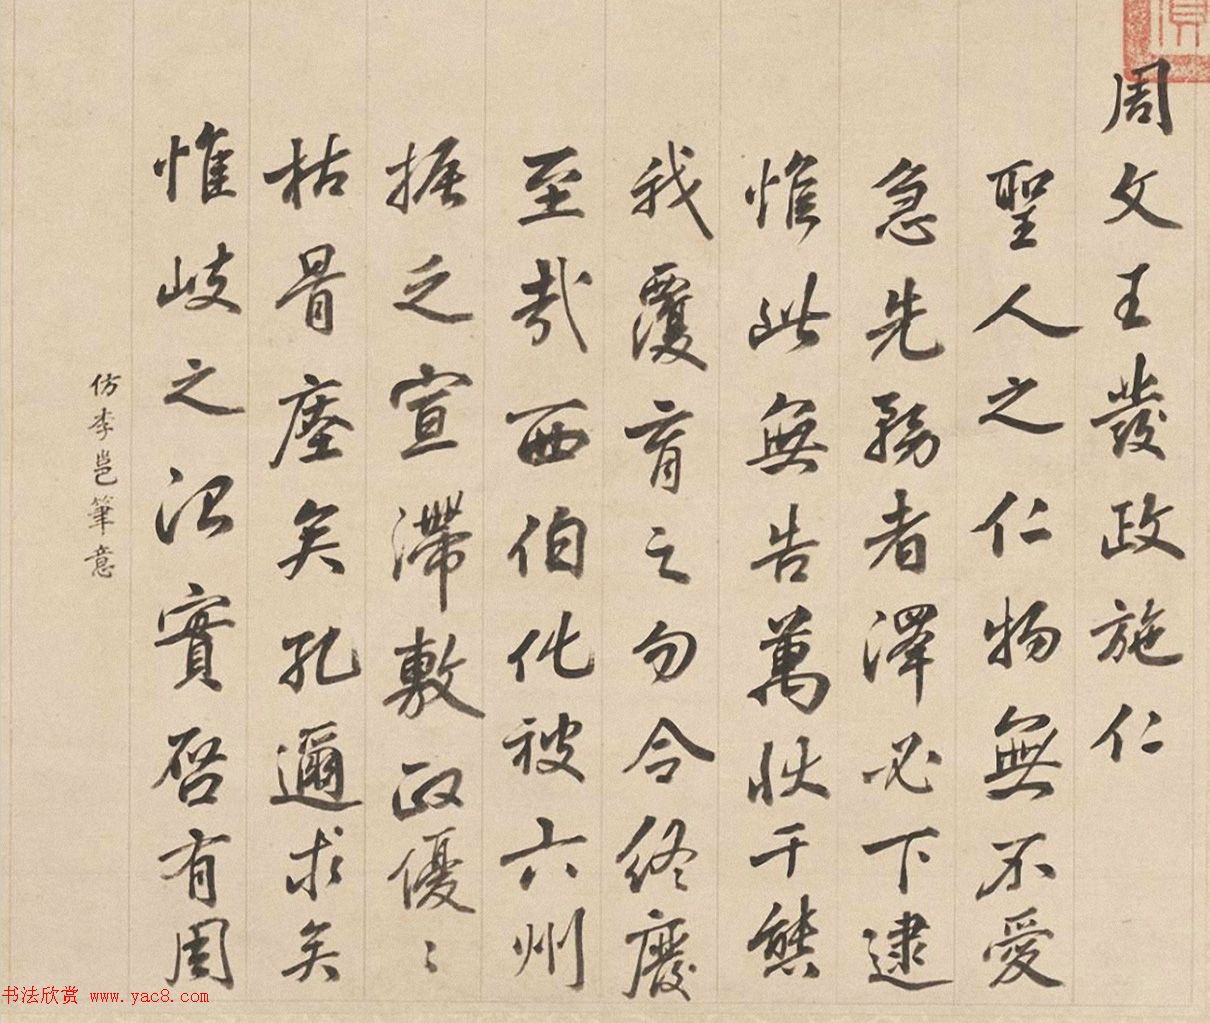 周文王發政施仁
聖人之仁物無不愛
急先務者澤必下逮
惟此無告萬狀千態
我覆育之勿令終廢
至哉西伯化被六州
振乏宣滯敷政優〻
枯骨瘞矣孔邇求矣
惟岐之治實啓有周
仿李邕筆意
书法欣赏 www.yac8.com